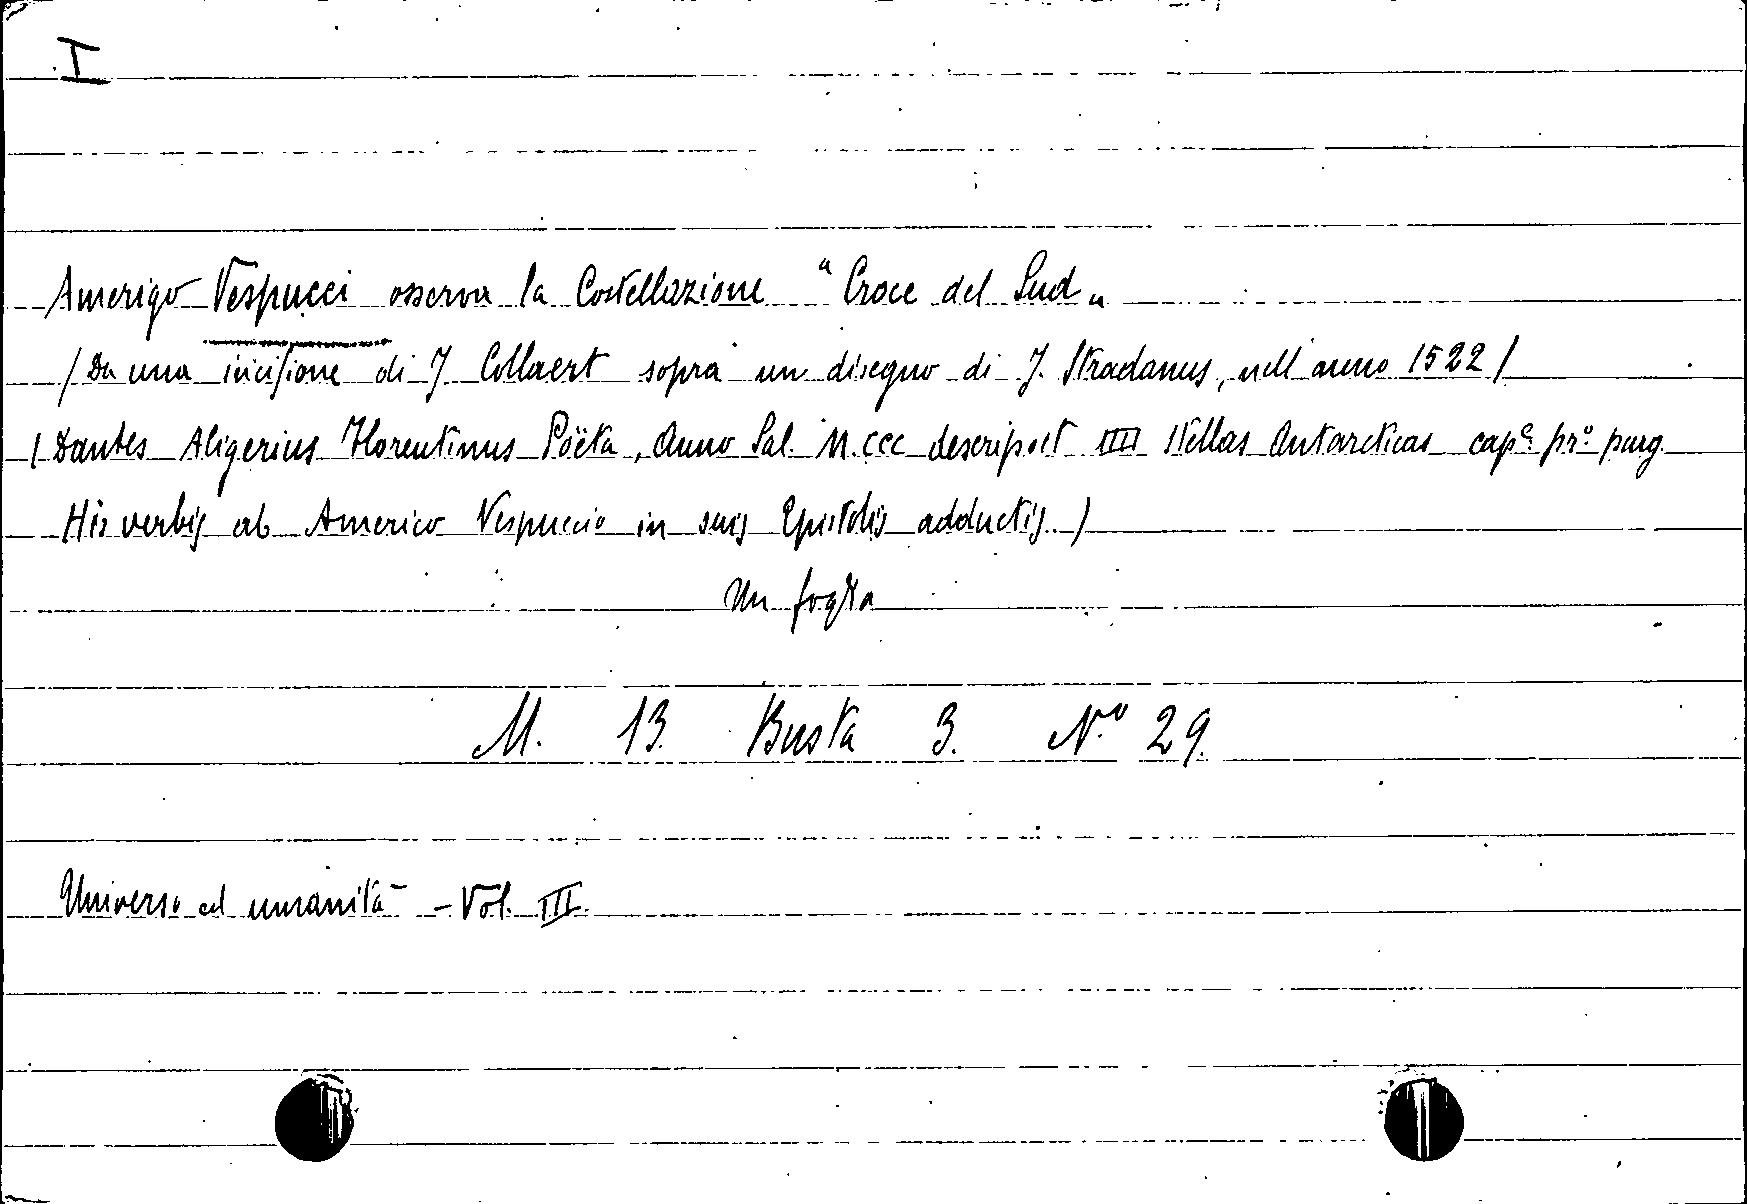 I
Amerigo Vespucci osserva la Costellazione "Croce del Sud"
(Da una incisione di J. Collaert sopra un disegno di J. Stradanus, nell'anno 1522)
(Dantes Aligerius Florentinus Poëta, Anno Sal. M.CCC descripsit IIII Stellas Antarcticas cap.º pr.º purg.
His verbis ab Americo Vespuccio in suis Epistolis adductis.)
Un foglio
M. 13. Busta 3. N.º 29.
Universo ed umanità - Vol. III.